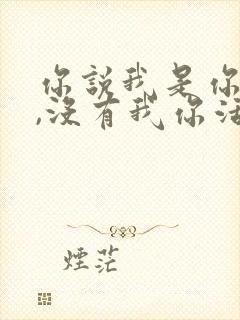 你說我是你
,沒有我你活
煙茫